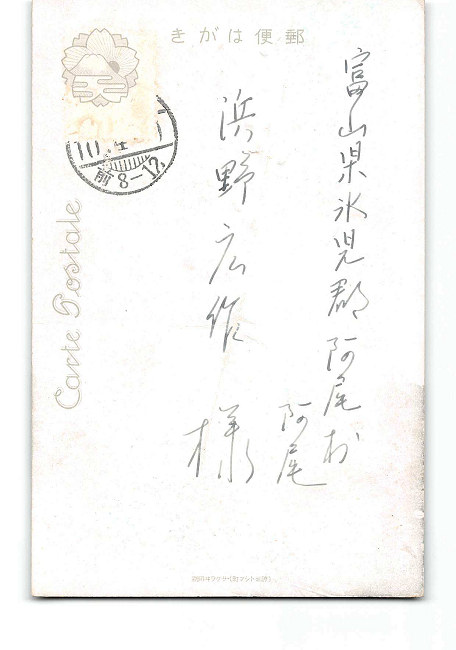 きがは便郵
富山県氷見郡阿尾村
阿尾
浜野広作様
前8-12
Carte Postale